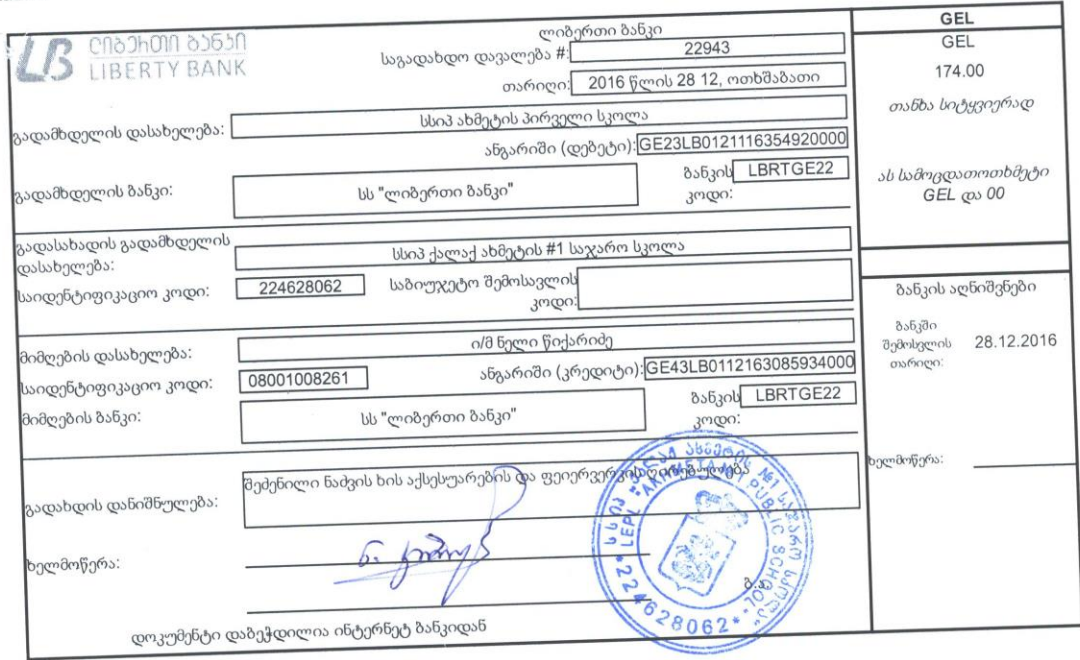 LB ლიბერთი ბანკი
LIBERTY BANK
ლიბერთი ბანკი
საგადახდო დავალება #: 22943
თარიღი: 2016 წლის 28 12, ოთხშაბათი
გადამხდელის დასახელება: სსიპ ახმეტის პირველი სკოლა
ანგარიში (დებეტი): GE23LB0121116354920000
გადამხდელის ბანკი: სს "ლიბერთი ბანკი" ბანკის კოდი: LBRTGE22
გადასახადის გადამხდელის
დასახელება: სსიპ ქალაქ ახმეტის #1 საჯარო სკოლა
საიდენტიფიკაციო კოდი: 224628062 საბიუჯეტო შემოსავლის
კოდი:
მიმღების დასახელება: ი/მ ნელი წიქარიძე
საიდენტიფიკაციო კოდი: 08001008261 ანგარიში (კრედიტი): GE43LB0112163085934000
მიმღების ბანკი: სს "ლიბერთი ბანკი" ბანკის კოდი: LBRTGE22
გადახდის დანიშნულება: შეძენილი ნაძვის ხის აქსესუარების და ფეიერვერკის ღირებულება
ხელმოწერა:
ბ.ა
დოკუმენტი დაბეჭდილია ინტერნეტ ბანკიდან
GEL
GEL
174.00
თანხა სიტყვიერად
ას სამოცდათოთხმეტი
GEL და 00
ბანკის აღნიშვნები
ბანკში
შემოსვლის 28.12.2016
თარიღი:
ხელმოწერა:
სსიპ ქალაქ ახმეტის №1 საჯარო სკოლა
LEPL AKHMETA №1 PUBLIC SCHOOL
*224628062*